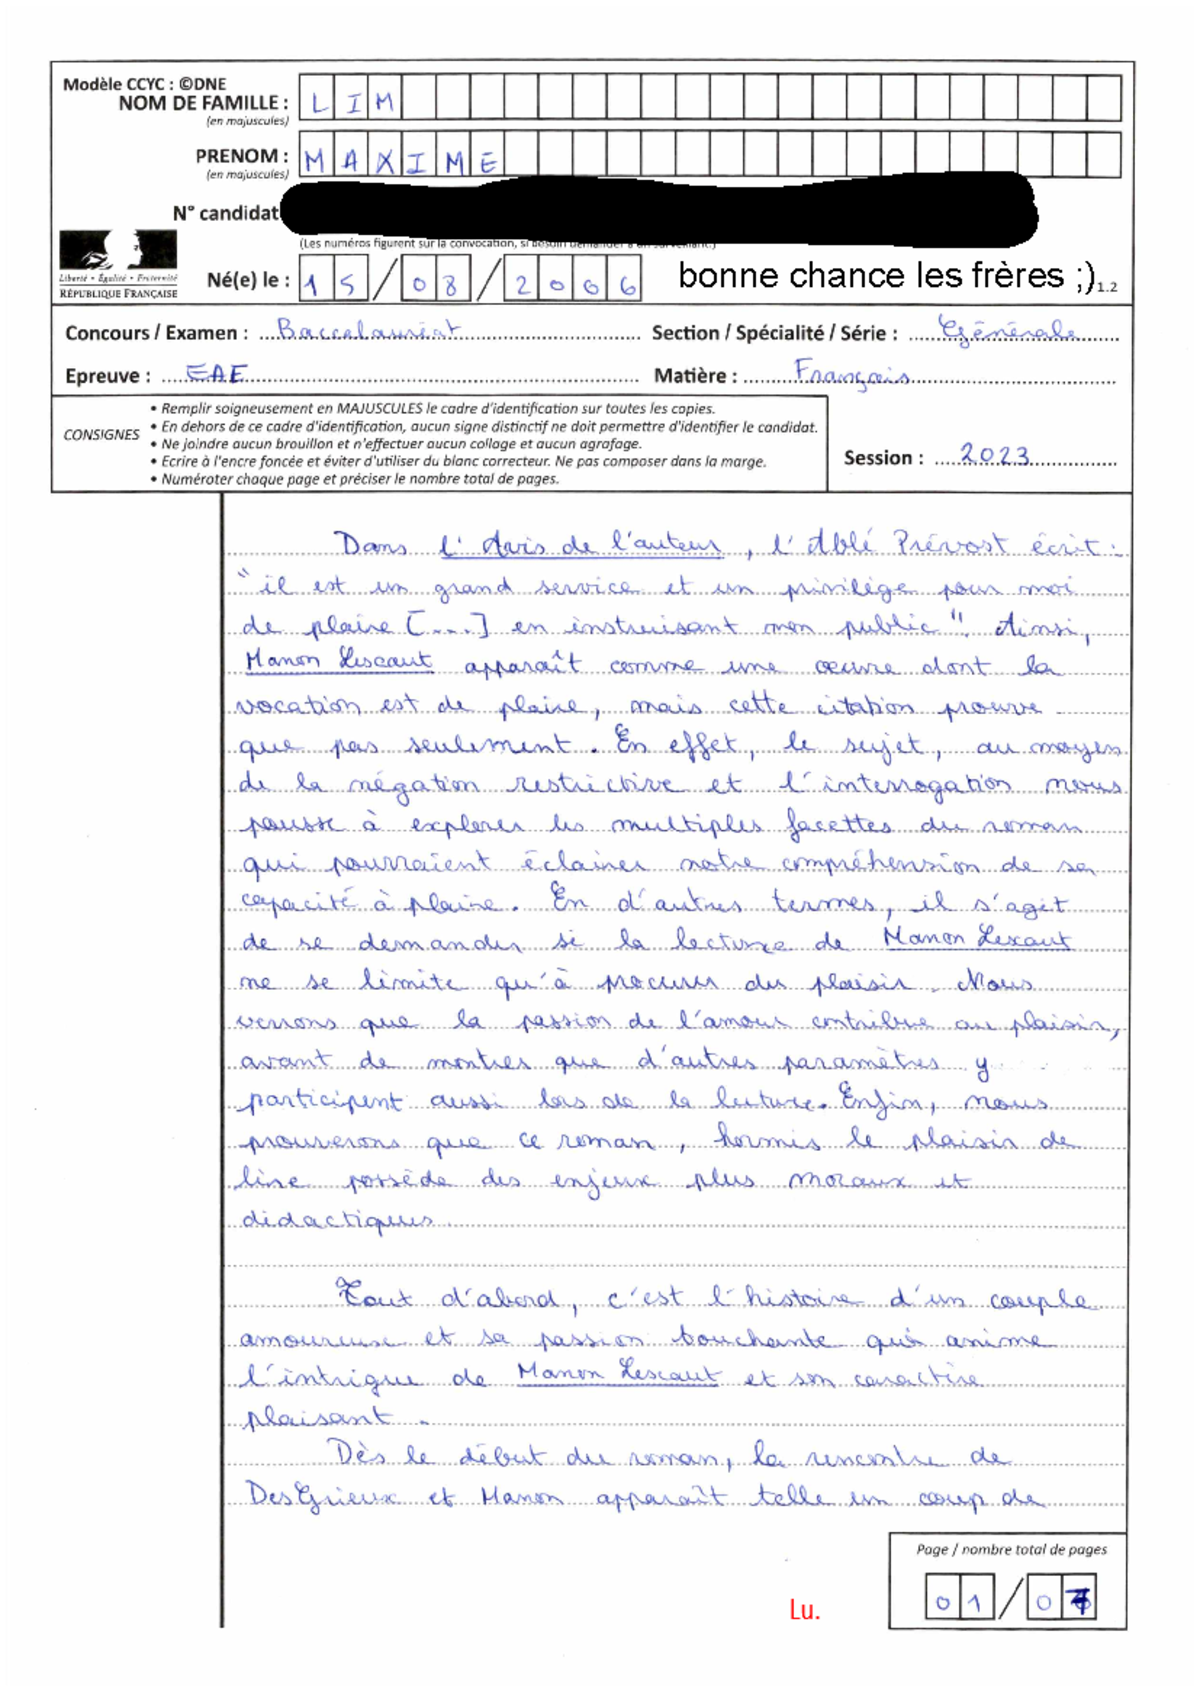 Modèle CCYC : ©DNE
NOM DE FAMILLE : LIM
(en majuscules)
PRENOM : MAXIME
(en majuscules)
N° candidat
(Les numéros figurent sur la convocation, si besoin demander à un surveillant.)
Liberté • Égalité • Fraternité
RÉPUBLIQUE FRANÇAISE
Né(e) le : 15/08/2006
bonne chance les frères ;)
1.2
Concours / Examen : Baccalauréat Section / Spécialité / Série : Générale
Epreuve : EAE Matière : Français
CONSIGNES
• Remplir soigneusement en MAJUSCULES le cadre d'identification sur toutes les copies.
• En dehors de ce cadre d'identification, aucun signe distinctif ne doit permettre d'identifier le candidat.
• Ne joindre aucun brouillon et n'effectuer aucun collage et aucun agrafage.
• Ecrire à l'encre foncée et éviter d'utiliser du blanc correcteur. Ne pas composer dans la marge.
• Numéroter chaque page et préciser le nombre total de pages.
Session : 2023
Dans l'Avis de l'auteur, l'Abbé Prévost écrit :
"il est un grand service et un privilège pour moi
de plaire [...] en instruisant mon public". Ainsi,
Manon Lescaut apparaît comme une œuvre dont la
vocation est de plaire, mais cette citation prouve
que pas seulement. En effet, le sujet, au moyen
de la négation restrictive et l'interrogation nous
pousse à explorer les multiples facettes du roman
qui pourraient éclairer notre compréhension de sa
capacité à plaire. En d'autres termes, il s'agit
de se demander si la lecture de Manon Lescaut
ne se limite qu'à procurer du plaisir. Nous
verrons que la passion de l'amour contribue au plaisir,
avant de montrer que d'autres paramètres y
participent aussi lors de la lecture. Enfin, nous
prouverons que ce roman, hormis le plaisir de
lire possède des enjeux plus moraux et
didactiques.
Tout d'abord, c'est l'histoire d'un couple
amoureuse et sa passion touchante qui anime
l'intrigue de Manon Lescaut et son caractère
plaisant.
Dès le début du roman, la rencontre de
DesGrieux et Manon apparaît telle un coup de
Page / nombre total de pages
01/07
Lu.